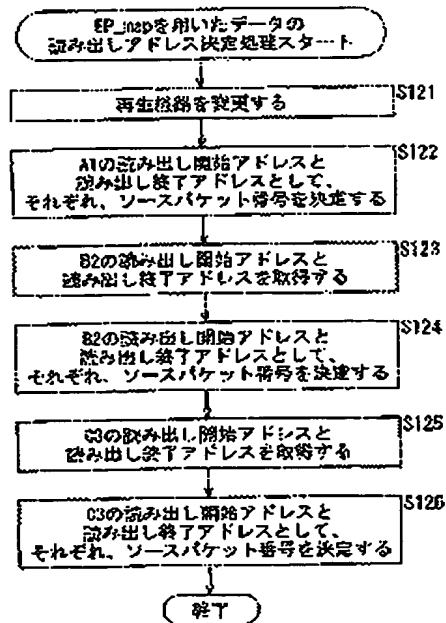 EP_mapを用いたデータの
読み出しアドレス決定処理スタート
S121
再生機器を変更する
S122
A1の読み出し開始アドレスと
読み出し終了アドレスとして、
それぞれ、ソースパケット番号を決定する
S123
B2の読み出し開始アドレスと
読み出し終了アドレスを取得する
S124
B2の読み出し開始アドレスと
読み出し終了アドレスとして、
それぞれ、ソースパケット番号を決定する
S125
C3の読み出し開始アドレスと
読み出し終了アドレスを取得する
S126
C3の読み出し開始アドレスと
読み出し終了アドレスとして、
それぞれ、ソースパケット番号を決定する
終了